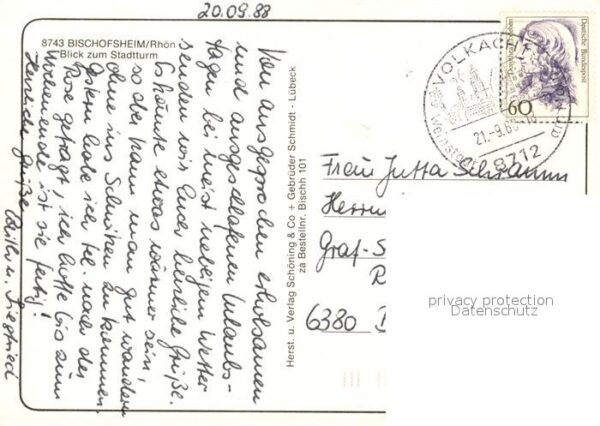 20.09.88
8743 BISCHOFSHEIM/Rhön
Blick zum Stadtturm
Von ausgesprochen erholsamen
und ausgeschlafenen Urlaubs-
tagen bei meist nebeligem Wetter
senden wir Euch herzliche Grüße.
Es könnte etwas wärmer sein,
so daß kann man gut wandern
ohne ins Schwitzen zu kommen.
Gestern habe ich tel. nach der
Rose gefragt, ich hoffe bis zum
Wochenende ist sie fertig!
Herzliche Grüße
u. Siegfried
Herst. u. Verlag Schöning & Co + Gebrüder Schmidt - Lübeck
za Bestellnr. Bischh 101
Deutsche Bundespost
60
VOLKACH
21.-9.88
8712
Frau Jutta Schramm
Herrn
Graf-S
R
6380
privacy protection
Datenschutz